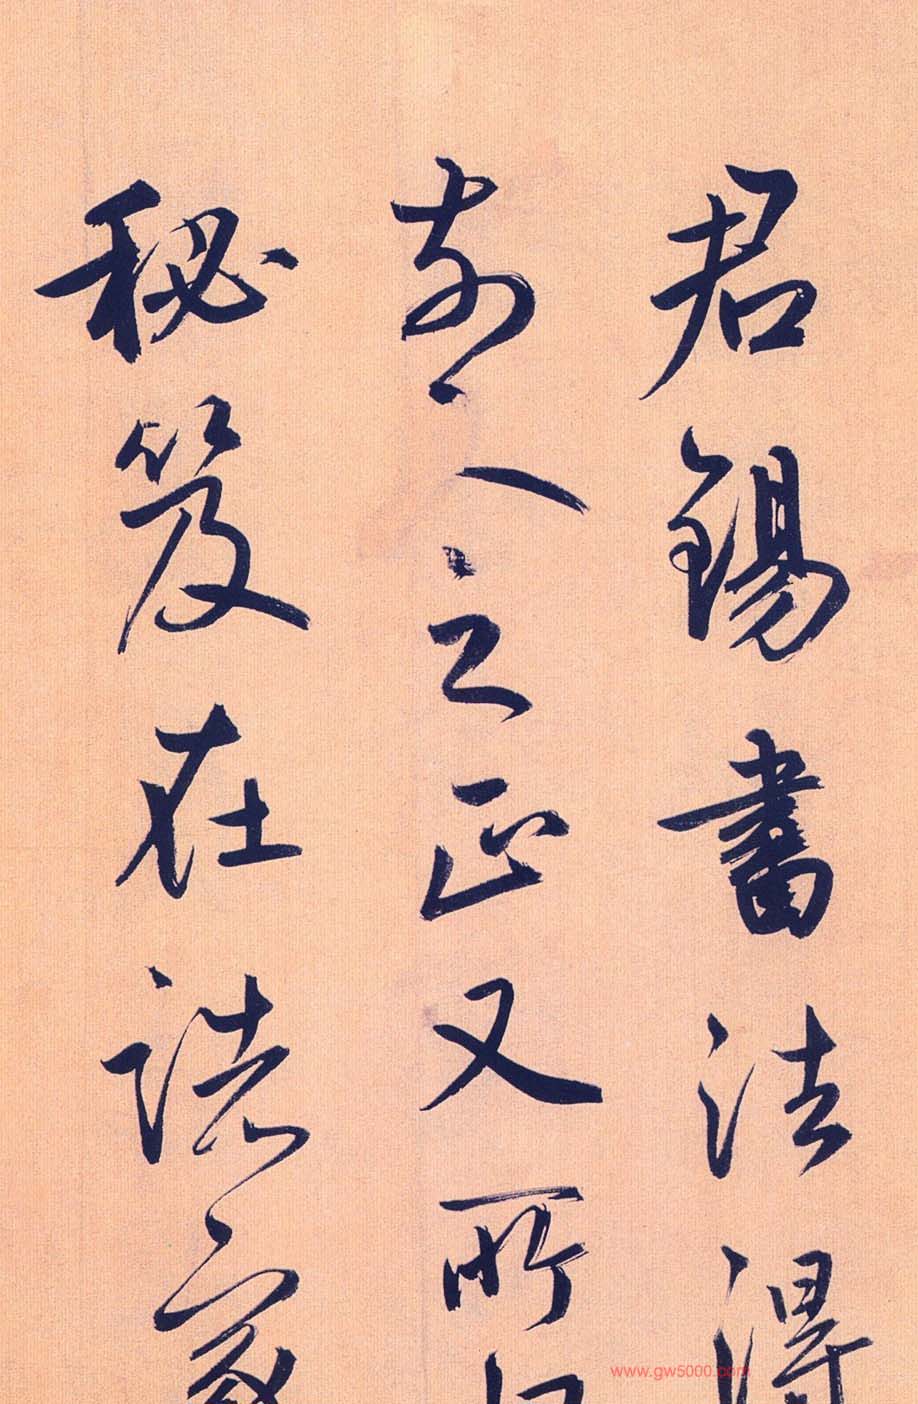 君錫書法得
前人之正又所
秘笈在諸
www.gw5000.com